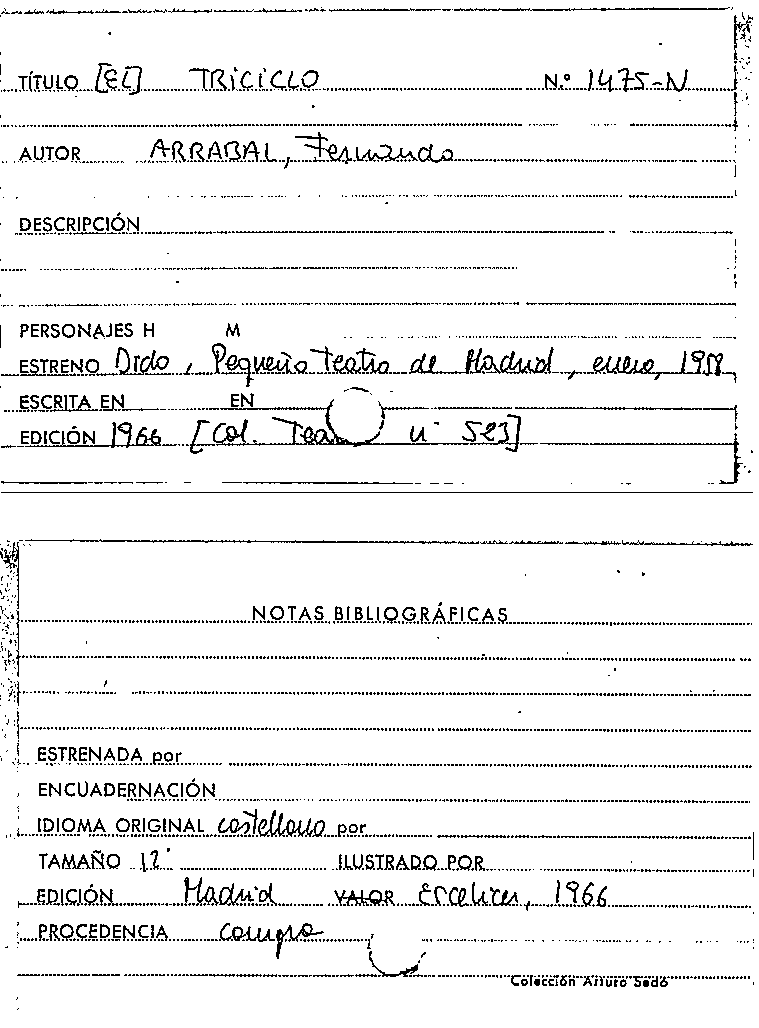 TÍTULO [El] TRICICLO N.º 1475-N
AUTOR ARRABAL, Fernando
DESCRIPCIÓN
PERSONAJES H M
ESTRENO Dido, Pequeño Teatro de Madrid, enero, 1958
ESCRITA EN EN
EDICIÓN 1966 [Col. Tea nº 523]
NOTAS BIBLIOGRÁFICAS
ESTRENADA por
ENCUADERNACIÓN
IDIOMA ORIGINAL castellano por
TAMAÑO 12º ILUSTRADO POR
EDICIÓN Madrid VALOR Escelicer, 1966
PROCEDENCIA compra
Colección Arturo Sedó